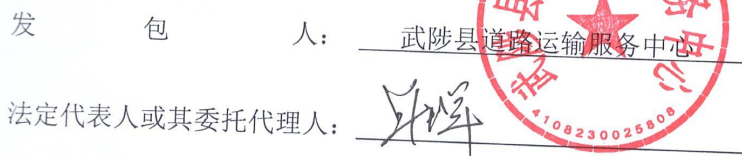 发 包 人： 武陟县道路运输服务中心
法定代表人或其委托代理人：
4108230025808